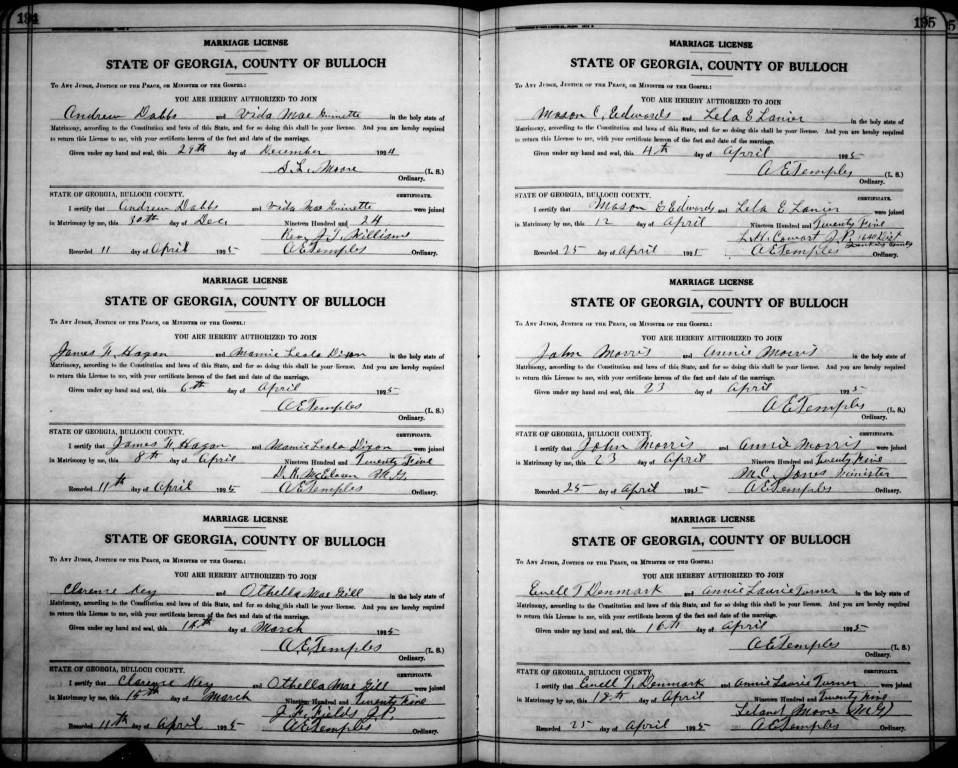 194
MARRIAGE LICENSE
STATE OF GEORGIA, COUNTY OF BULLOCH
To Any Judge, Justice of the Peace, or Minister of the Gospel:
YOU ARE HEREBY AUTHORIZED TO JOIN
Andrew Dabbs and Vida Mae Grinette in the holy state of
Matrimony, according to the Constitution and laws of this State, and for so doing this shall be your license. And you are hereby required
to return this License to me, with your certificate hereon of the fact and date of the marriage.
Given under my hand and seal, this 29th day of December 1924
S. L. Moore (L. S.)
Ordinary.
STATE OF GEORGIA, BULLOCH COUNTY. CERTIFICATE.
I certify that Andrew Dabbs and Vida Mae Grinette were joined
in Matrimony by me, this 30th day of Dec. Nineteen Hundred and 24
Rev. J. T. Williams
Recorded 11 day of April 1925 A E Temples Ordinary.
MARRIAGE LICENSE
STATE OF GEORGIA, COUNTY OF BULLOCH
To Any Judge, Justice of the Peace, or Minister of the Gospel:
YOU ARE HEREBY AUTHORIZED TO JOIN
James H. Hagan and Mamie Leola Dixon in the holy state of
Matrimony, according to the Constitution and laws of this State, and for so doing this shall be your license. And you are hereby required
to return this License to me, with your certificate hereon of the fact and date of the marriage.
Given under my hand and seal, this 6th day of April 1925
A E Temples (L. S.)
Ordinary.
STATE OF GEORGIA, BULLOCH COUNTY. CERTIFICATE.
I certify that James H. Hagan and Mamie Leola Dixon were joined
in Matrimony by me, this 8th day of April Nineteen Hundred and Twenty Five
D. R. McElveen M.G.
Recorded 11th day of April 1925 A E Temples Ordinary.
MARRIAGE LICENSE
STATE OF GEORGIA, COUNTY OF BULLOCH
To Any Judge, Justice of the Peace, or Minister of the Gospel:
YOU ARE HEREBY AUTHORIZED TO JOIN
Clarence Key and Othella Mae Gill in the holy state of
Matrimony, according to the Constitution and laws of this State, and for so doing this shall be your license. And you are hereby required
to return this License to me, with your certificate hereon of the fact and date of the marriage.
Given under my hand and seal, this day of March 1925
A. E. Temples (L. S.)
Ordinary.
STATE OF GEORGIA, BULLOCH COUNTY. CERTIFICATE.
I certify that Clarence Key and Othella Mae Gill were joined
in Matrimony by me, this 15th day of March Nineteen Hundred and Twenty Five
Fields
Recorded 11th day of April 1925 A E Temples Ordinary.
195
5
MARRIAGE LICENSE
STATE OF GEORGIA, COUNTY OF BULLOCH
To Any Judge, Justice of the Peace, or Minister of the Gospel:
YOU ARE HEREBY AUTHORIZED TO JOIN
Mason C. Edwards and Lela E Lanier in the holy state of
Matrimony, according to the Constitution and laws of this State, and for so doing this shall be your license. And you are hereby required
to return this License to me, with your certificate hereon of the fact and date of the marriage.
Given under my hand and seal, this 4th day of April 1925
A E Temples (L. S.)
Ordinary.
STATE OF GEORGIA, BULLOCH COUNTY. CERTIFICATE.
I certify that Mason C Edwards and Lela E Lanier were joined
in Matrimony by me, this 12 day of April Nineteen Hundred and Twenty Five
L. H. Cowart J. P. 1640 Dist
Recorded 25 day of April 1925 A E Temples Ordinary.
MARRIAGE LICENSE
STATE OF GEORGIA, COUNTY OF BULLOCH
To Any Judge, Justice of the Peace, or Minister of the Gospel:
YOU ARE HEREBY AUTHORIZED TO JOIN
John Morris and Annie Morris in the holy state of
Matrimony, according to the Constitution and laws of this State, and for so doing this shall be your license. And you are hereby required
to return this License to me, with your certificate hereon of the fact and date of the marriage.
Given under my hand and seal, this 23 day of April 1925
A E Temples (L. S.)
Ordinary.
STATE OF GEORGIA, BULLOCH COUNTY. CERTIFICATE.
I certify that John Morris and Annie Morris were joined
in Matrimony by me, this 23 day of April Nineteen Hundred and Twenty Five
M. C. Jones Minister
Recorded 25 day of April 1925 A E Temples Ordinary.
MARRIAGE LICENSE
STATE OF GEORGIA, COUNTY OF BULLOCH
To Any Judge, Justice of the Peace, or Minister of the Gospel:
YOU ARE HEREBY AUTHORIZED TO JOIN
Ewell T Denmark and Annie Laurie Turner in the holy state of
Matrimony, according to the Constitution and laws of this State, and for so doing this shall be your license. And you are hereby required
to return this License to me, with your certificate hereon of the fact and date of the marriage.
Given under my hand and seal, this 16th day of April 1925
A E Temples (L. S.)
Ordinary.
STATE OF GEORGIA, BULLOCH COUNTY. CERTIFICATE.
I certify that Ewell T. Denmark and Annie Laurie Turner were joined
in Matrimony by me, this 18th day of April Nineteen Hundred and Twenty Five
Leland Moore (M.G.)
Recorded 25 day of April 1925 A E Temples Ordinary.